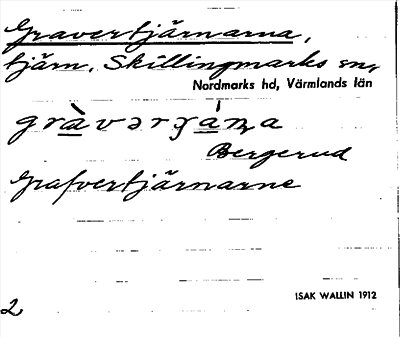 Gravertjärnarna,
tjärn. Skillingmarks sn,
Nordmarks hd, Värmlands län
gràvərȷána
Bergerud
Grafvertjärnarne
ISAK WALLIN 1912
2